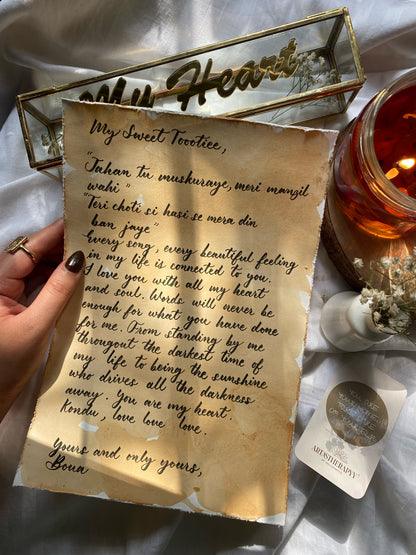 My Heart
My Sweet Tootiee,
"Jahan tu mushuraye, meri mangil
wahi"
"Teri choti si hasi se mera din
ban jaye"
Every song, every beautiful feeling
in my life is connected to you.
I love you with all my heart
and soul. Words will never be
enough for what you have done
for me. From standing by me
througout the darkest time of
my life to being the sunshine
who drives all the darkness
away. You are my heart.
Kondu, love love love.
Yours and only yours,
Boua
ARTISTHERAPYY